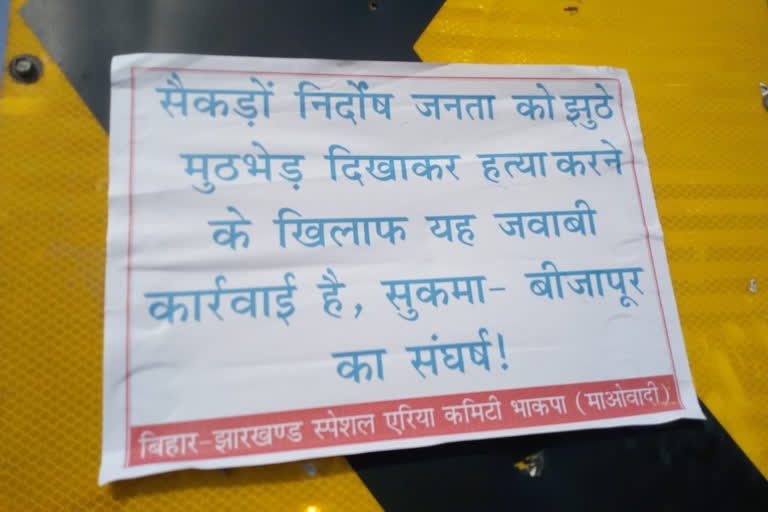 सैकड़ों निर्दोष जनता को झुठे
मुठभेड़ दिखाकर हत्या करने
के खिलाफ यह जवाबी
कार्रवाई है, सुकमा- बीजापूर
का संघर्ष!
बिहार-झारखण्ड स्पेशल एरिया कमिटी भाकपा (माओवादी)